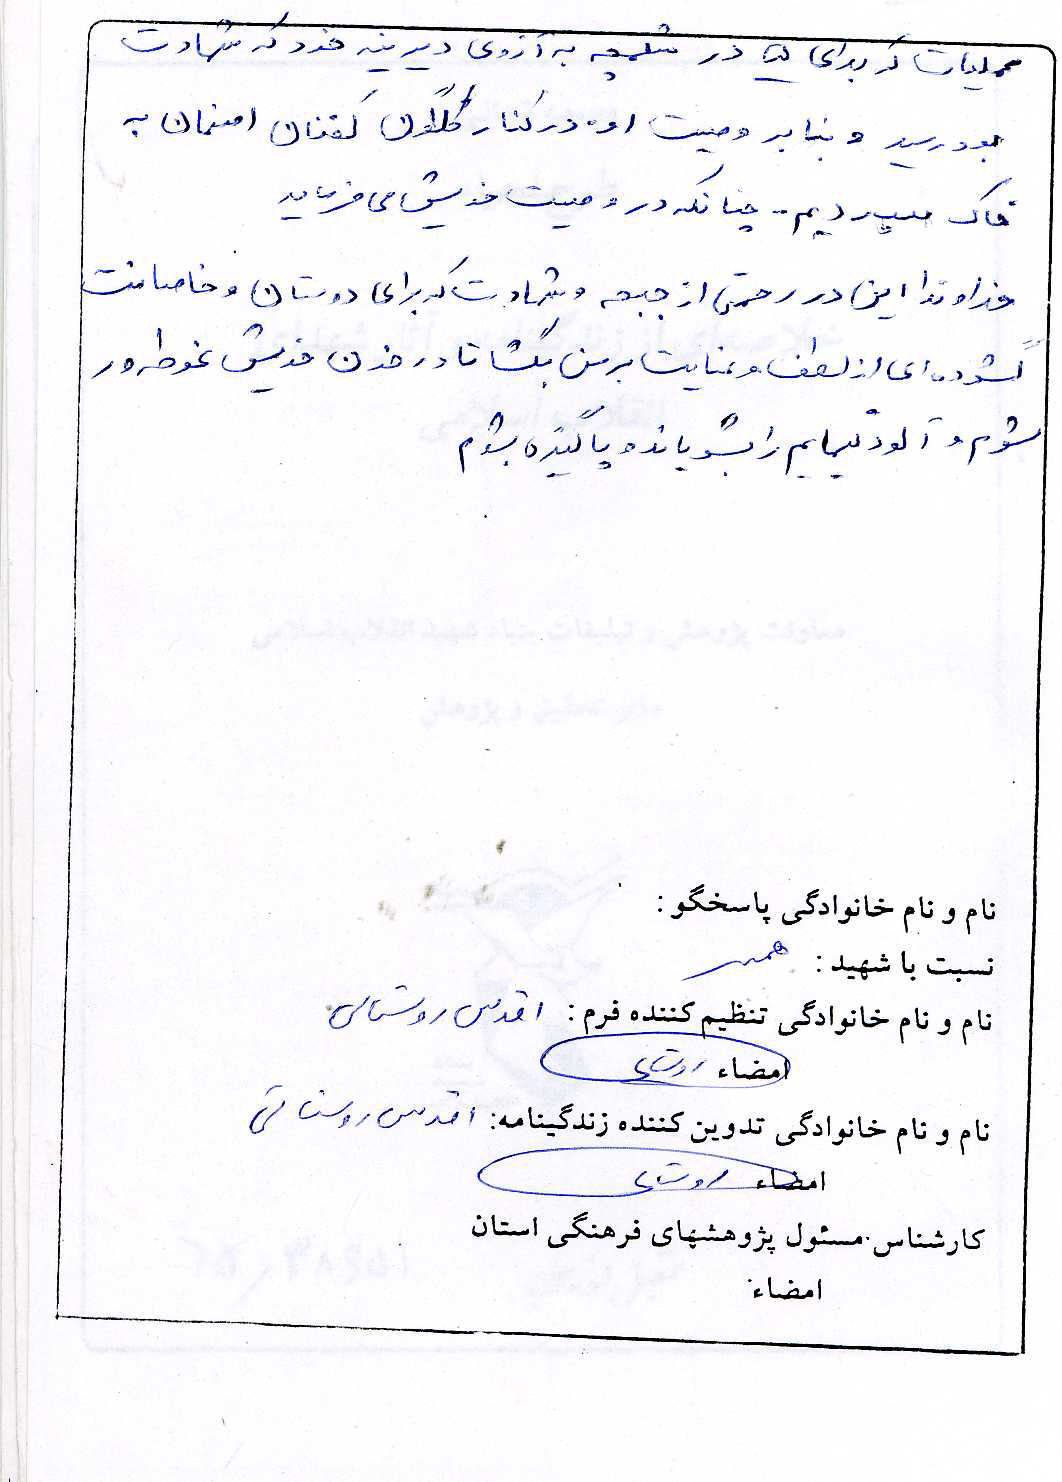 عملیات کربلای ۵ در شلمچه به آرزوی دیرینه خود که شهادت
بود رسید و بنا بر وصیت او در کنار گلگون کفنان اصفهان به
خاک سپردیم. چنانکه در وصیت خویش می فرماید
خداوندا این در رحمتی از جبهه و شهادت که برای دوستان و خاصانت
گشوده ای از لطف و عنایت بر من بگشا تا در خون خویش غوطه ور
بشوم و آلودگیهایم را بشویاند و پاکیزه بشوم
نام و نام خانوادگی پاسخگو :
نسبت با شهید : همسر
نام و نام خانوادگی تنظیم کننده فرم : اقدس روستائی
امضاء روستایی
نام و نام خانوادگی تدوین کننده زندگینامه: اقدس روستائی
امضاء روستایی
کارشناس مسئول پژوهشهای فرهنگی استان
امضاء: